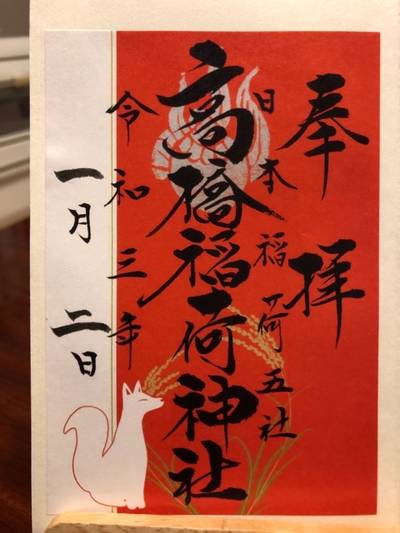 奉拝
日本稲荷五社
高橋稲荷神社
令和三年
一月二日